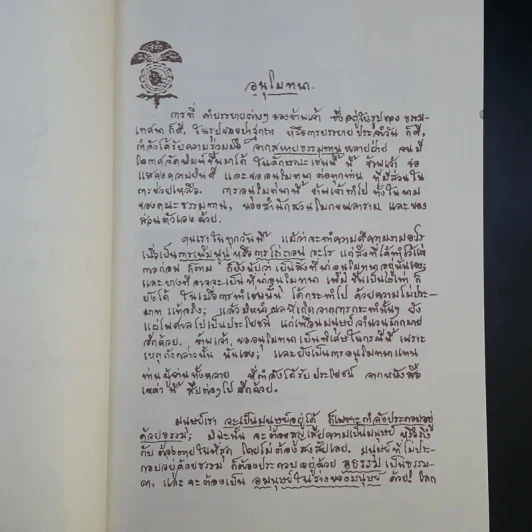 อนุโมทนา.
การที่ คำบรรยายต่างๆ ของข้าพเจ้า ซึ่งอยู่ในรูปของ ธรรม
เทศนา ก็ดี, ในรูปของปาฐกถา หรือการบรรยาย ประจำวัน ก็ดี,
กำลังได้รับความร่วมมือ จากสหายธรรมทาน หลายฝ่าย จนมี
โอกาสจัดพิมพ์ขึ้นมาได้ ในลักษณะเช่นนี้ นี้ ข้าพเจ้า ขอ
แสดงความยินดี และขออนุโมทนา ต่อทุกท่าน ที่มีส่วนใน
การช่วยเหลือ. การอนุโมทนานี้ ข้าพเจ้าทำไป ทั้งในนาม
ของคณะธรรมทาน, ของสำนักสวนโมกขพลาราม, และของ
ส่วนตัวเอง ด้วย.
คนเราในทุกวันนี้ แม้ว่าจะทำความดีความงามอะไร
เพื่อเป็นการเพิ่มพูน หรือการไถ่ถอน อะไร แต่สิ่งที่ได้ทำไว้แต่
กาลก่อน ก็ตาม ก็ยังนับว่า เป็นสิ่งที่น่าอนุโมทนา อยู่นั่นเอง;
และบางทีอาจจะเป็น ที่น่าอนุโมทนา เพิ่มขึ้นเป็น๒เท่า ก็
ยังได้ ในเมื่อการทำเช่นนั้น ได้กระทำไป ด้วยความไม่ประ-
มาท แท้จริง; แล้วยังมีผลที่เกิดจากการกระทำนั้นๆ ยัง
แผ่ไพศาลไปเป็นประโยชน์ แก่เพื่อนมนุษย์ จำนวนมากมาย
อีกด้วย. ข้าพเจ้า, ขออนุโมทนา เป็นพิเศษในกรณีนี้ เพราะ
เหตุดังกล่าวนั้น นั่นเอง; และยังเป็นการอนุโมทนาแทน
ท่านผู้อ่านทั้งหลาย ที่กำลังได้รับ ประโยชน์ จากหนังสือ
เหล่านี้ สืบต่อๆไป อีกด้วย.
มนุษย์เรา จะเป็นมนุษย์อยู่ได้ ก็เพราะกำลังประกอบอยู่
ด้วยธรรม; มิฉะนั้น จะต้องสูญเสียความเป็นมนุษย์ หรือถึง
กับ ต้องตายในที่สุด โดยไม่ต้องสงสัยเลย. มนุษย์ที่ไม่ประ-
กอบอยู่ด้วยธรรม ก็ต้องประกอบอยู่ด้วย อธรรม เป็นธรรม-
ดา, และจะต้องเป็น อมนุษย์ในร่างของมนุษย์ ด้วย; โลก